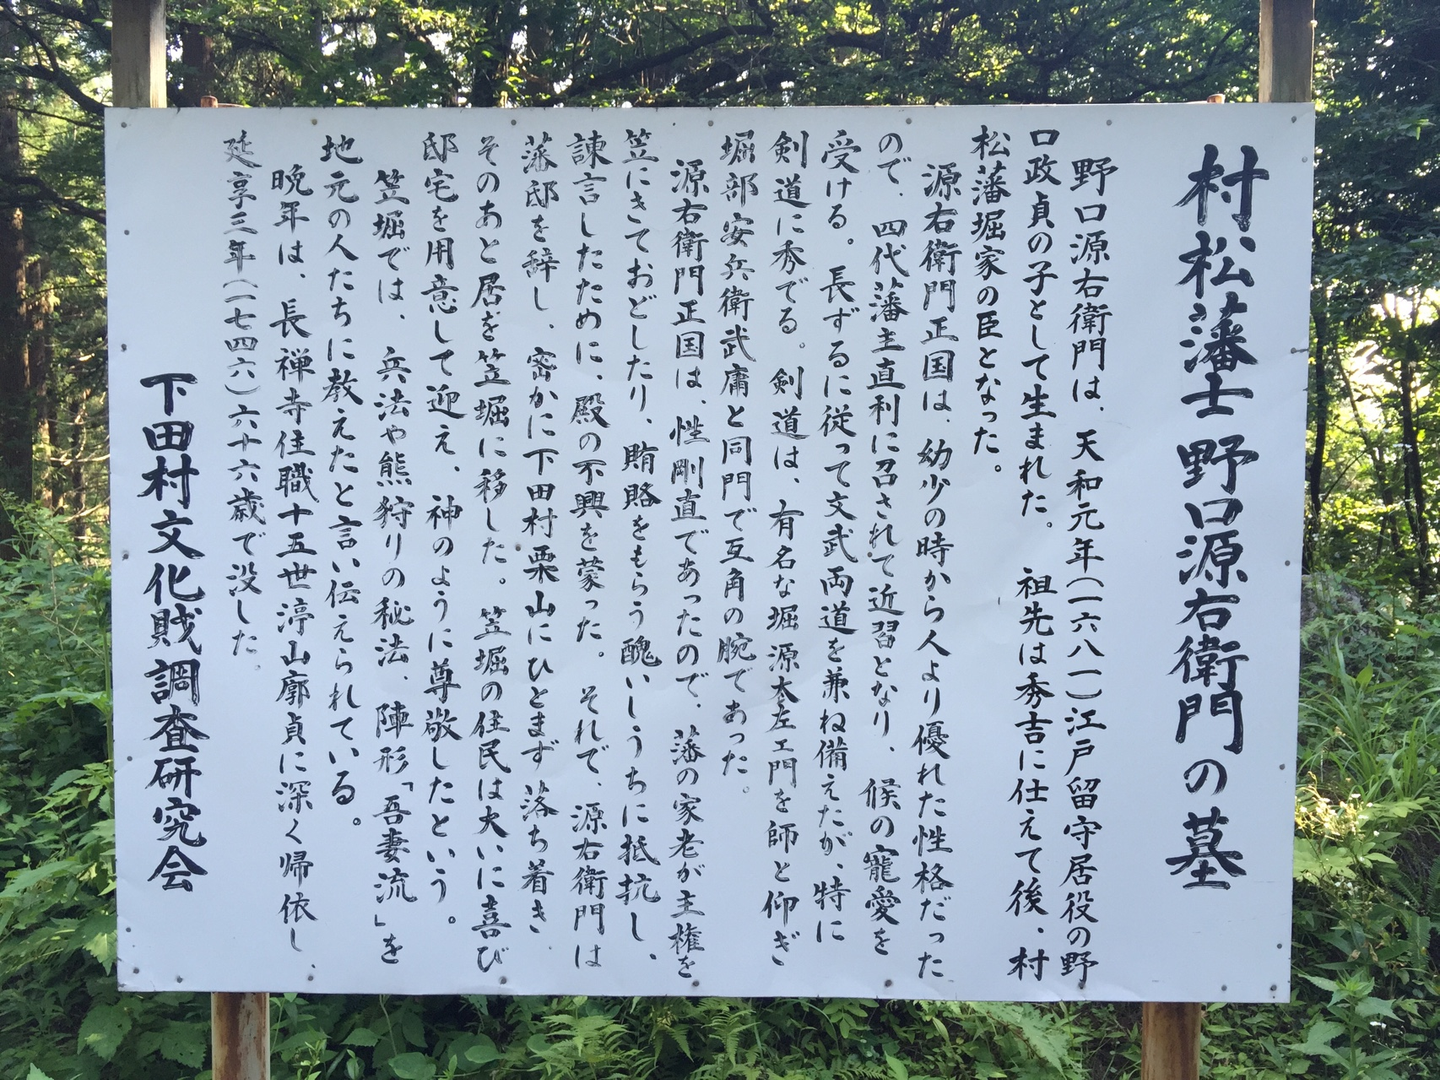 村松藩士 野口源右衛門の墓
野口源右衛門は、天和元年(一六八一)江戸留守居役の野
口政貞の子として生まれた。祖先は秀吉に仕えて後、村
松藩堀家の臣となった。
源右衛門正国は、幼少の時から人より優れた性格だった
ので、四代藩主直利に召されて近習となり、候の寵愛を
受ける。長ずるに従って文武両道を兼ね備えたが、特に
剣道に秀でる。剣道は、有名な堀源太左エ門を師と仰ぎ
堀部安兵衛武庸と同門で互角の腕であった。
源右衛門正国は、性剛直であったので、藩の家老が主権を
笠にきて、おどしたり、賄賂をもらう醜いしうちに抵抗し、
諌言したために、殿の不興を蒙った。それで、源右衛門は
藩邸を辞し、密かに下田村栗山にひとまず落ち着き
そのあと居を笠堀に移した。笠堀の住民は大いに喜び
邸宅を用意して迎え、神のように尊敬したという。
笠堀では、兵法や熊狩りの秘法、陣形「吾妻流」を
地元の人たちに教えたと言い伝えられている。
晩年は、長禅寺住職十五世渟山廓貞に深く帰依し、
延享三年(一七四六)六十六歳で没した。
下田村文化財調査研究会